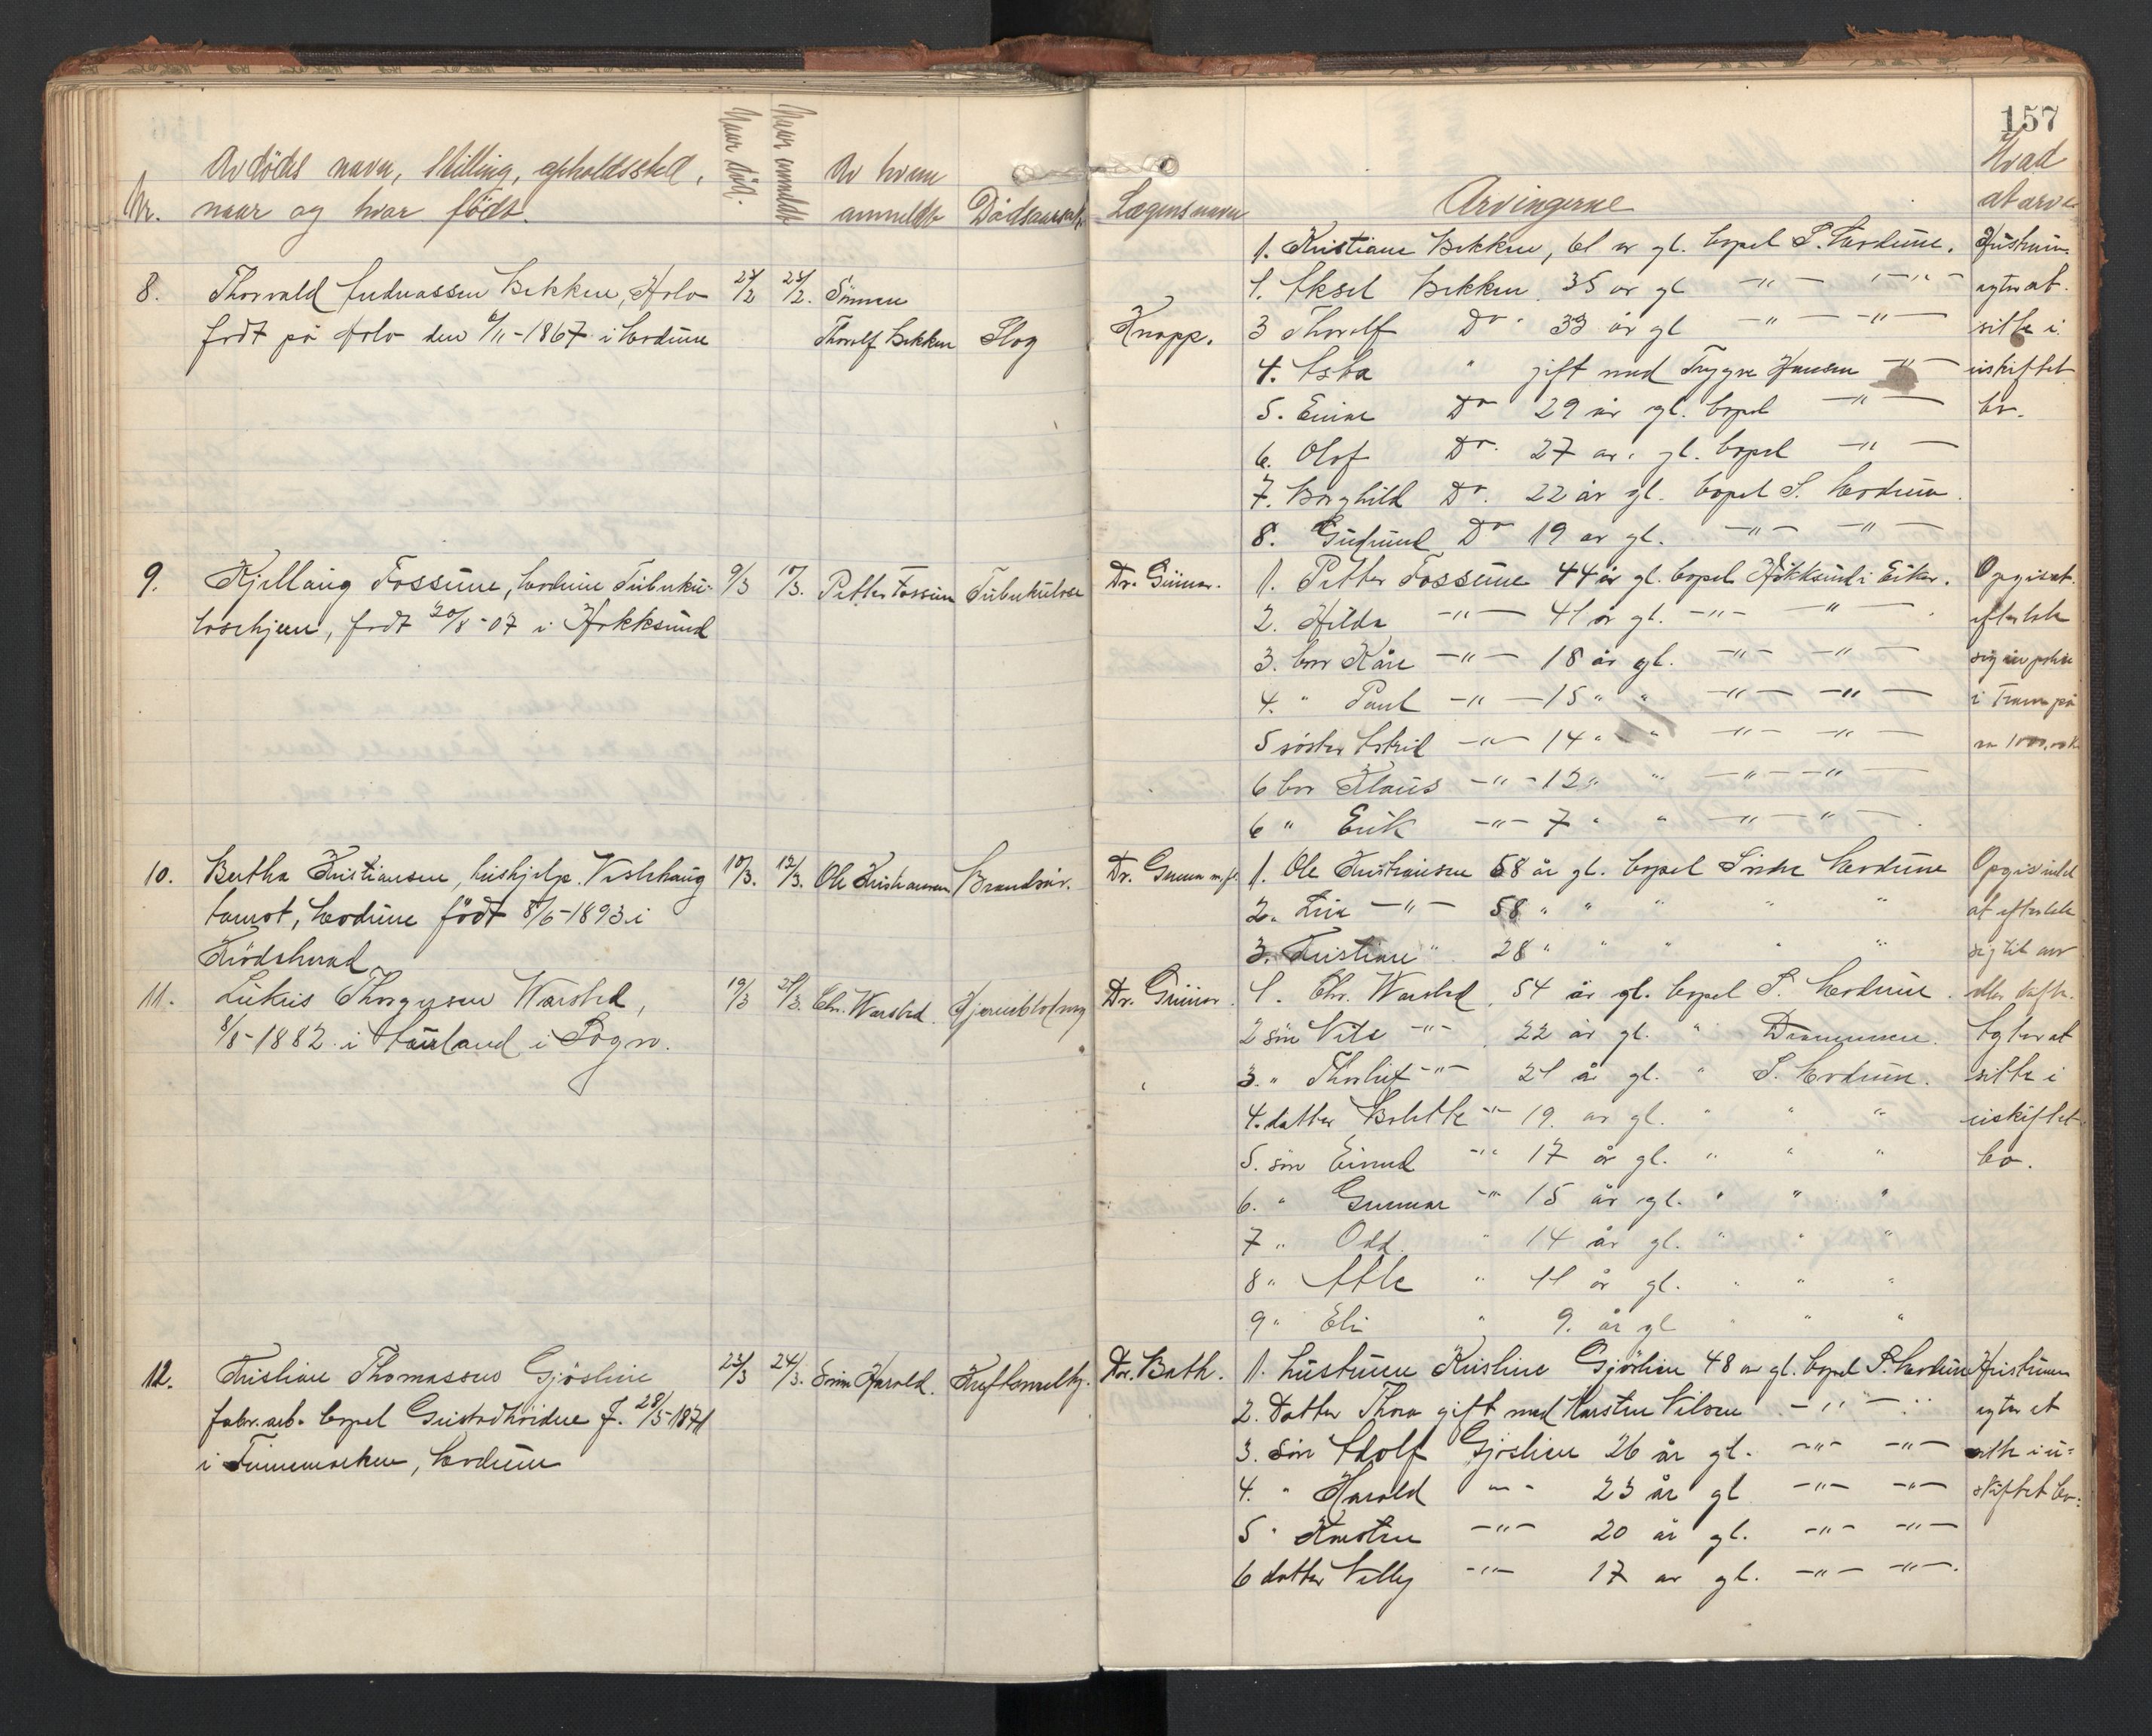 157
Nr.
Avdödes navn, stilling, opholdssted,
naar og hvor födt.
Naar död.
Naar anmeldt
Av hvem
anmeldt
Dödsaarsak
Lægens navn
Arvingerne
Hvad
at arve
8.
Thorvald Andreassen Bekken, Holo
født på Holo den 6/11-1867 i Modum
22/2
Sönnen
Thorolf Bekken
Slag
Knapp.
1. Kristiane Bekken, 61 år gl. bopel S. Modum.
2. Aksel Bekken 35 år gl -"- -"-
3 Thorolf Do 33 år gl -"- -"-
4. Asta " gift med Trygve Hansen -"-
5. Einar Do 29 år gl. bopel -"-
6. Olof Do. 27 år. gl. bopel -"-
7. Borghild Do. 22 år gl. bopel S. Modum.
8. Gudmund Do 19 år gl. -"- -"-
Hustruen
agter at
sitte i
uskiftet
bo.
9.
Kjellaug Fossum, Modum Tuberku-
losehjem, født 20/8-07 i Hokksund
9/3
10/3.
Petter Fossum
Tuberkulose
Dr. Gunnar.
1. Petter Fossum 44 år gl. bopel Hokksund i Eiker.
2. Hilda -"- 41 år gl. -"- -"-
3. bror Kåre -"- 18 år gl. -"- -"-
4. " Paul -"- 15 " " -"- -"-
5 söster Astrid -"- 14 " " -"- -"-
6 bror Klaus -"- 12 " " -"- -"-
6 " Erik -"- 7 " " -"- -"-
Opgis at
efterlate
sig en polise
i Tram på
10.
Bertha Kristiansen, hushjelp. Vesthaug
Modum födt 8/6-1893 i
Krödsherad
10/3.
12/3.
Ole Kristiansen
Brandsår.
Dr. Gunnar m.fl.
1. Ole Kristiansen 68 år gl. bopel Söndre Modum
2. Lise -"- 58 " " " "
3. Kristiane " 28 " " " " "
Opgis intet
at efterlate
sig til arv
eller skifte.
11.
Lukris Thorgersen Warsted,
8/8-1882 i Aurland i Sogn.
19/3
21/3.
Chr. Warsted.
Hjerneblödning
Dr. Gunnar.
1. Chr. Warsted, 54 år gl. bopel S. Modum.
2 sön Nils -"- 22 år gl. " Drammen.
3. " Thorleif -"- 21 år gl. " S. Modum.
4. datter Bolette -"- 19. år gl. " " "
5. sön Eivind -"- 17 år gl. " " "
6. " Gunnar -"- 15 år gl. " " "
7 " Odd. " 14 år gl. " " "
8 " Atle " 11 år gl. " " "
9 " Eli " 9. år gl " " "
Agter at
sitte i
uskiftet
bo.
12.
Kristian Thomassen Gjöslien
fabr.arb. bopel Gustadhöiden f. 28/5-1871
i Finnemarken, Modum
23/3
24/3.
Sönn Harald.
Kræftsvulst.
Dr. Bath.
1. hustruen Kristine Gjöslien 48 år gl. bopel S. Modum
2. Datter Thora gift med Karsten Nilsen -"- -"-
3. Sön Adolf Gjöslien 26 år gl. -"- -"-
4. " Harald -"- 23 år gl -"- -"-
5 " Karsten -"- 20 år gl. -"- -"-
6 datter Villy -"- 17 år gl. -"- -"-
Hustruen
agter at
sitte i u-
skiftet bo.